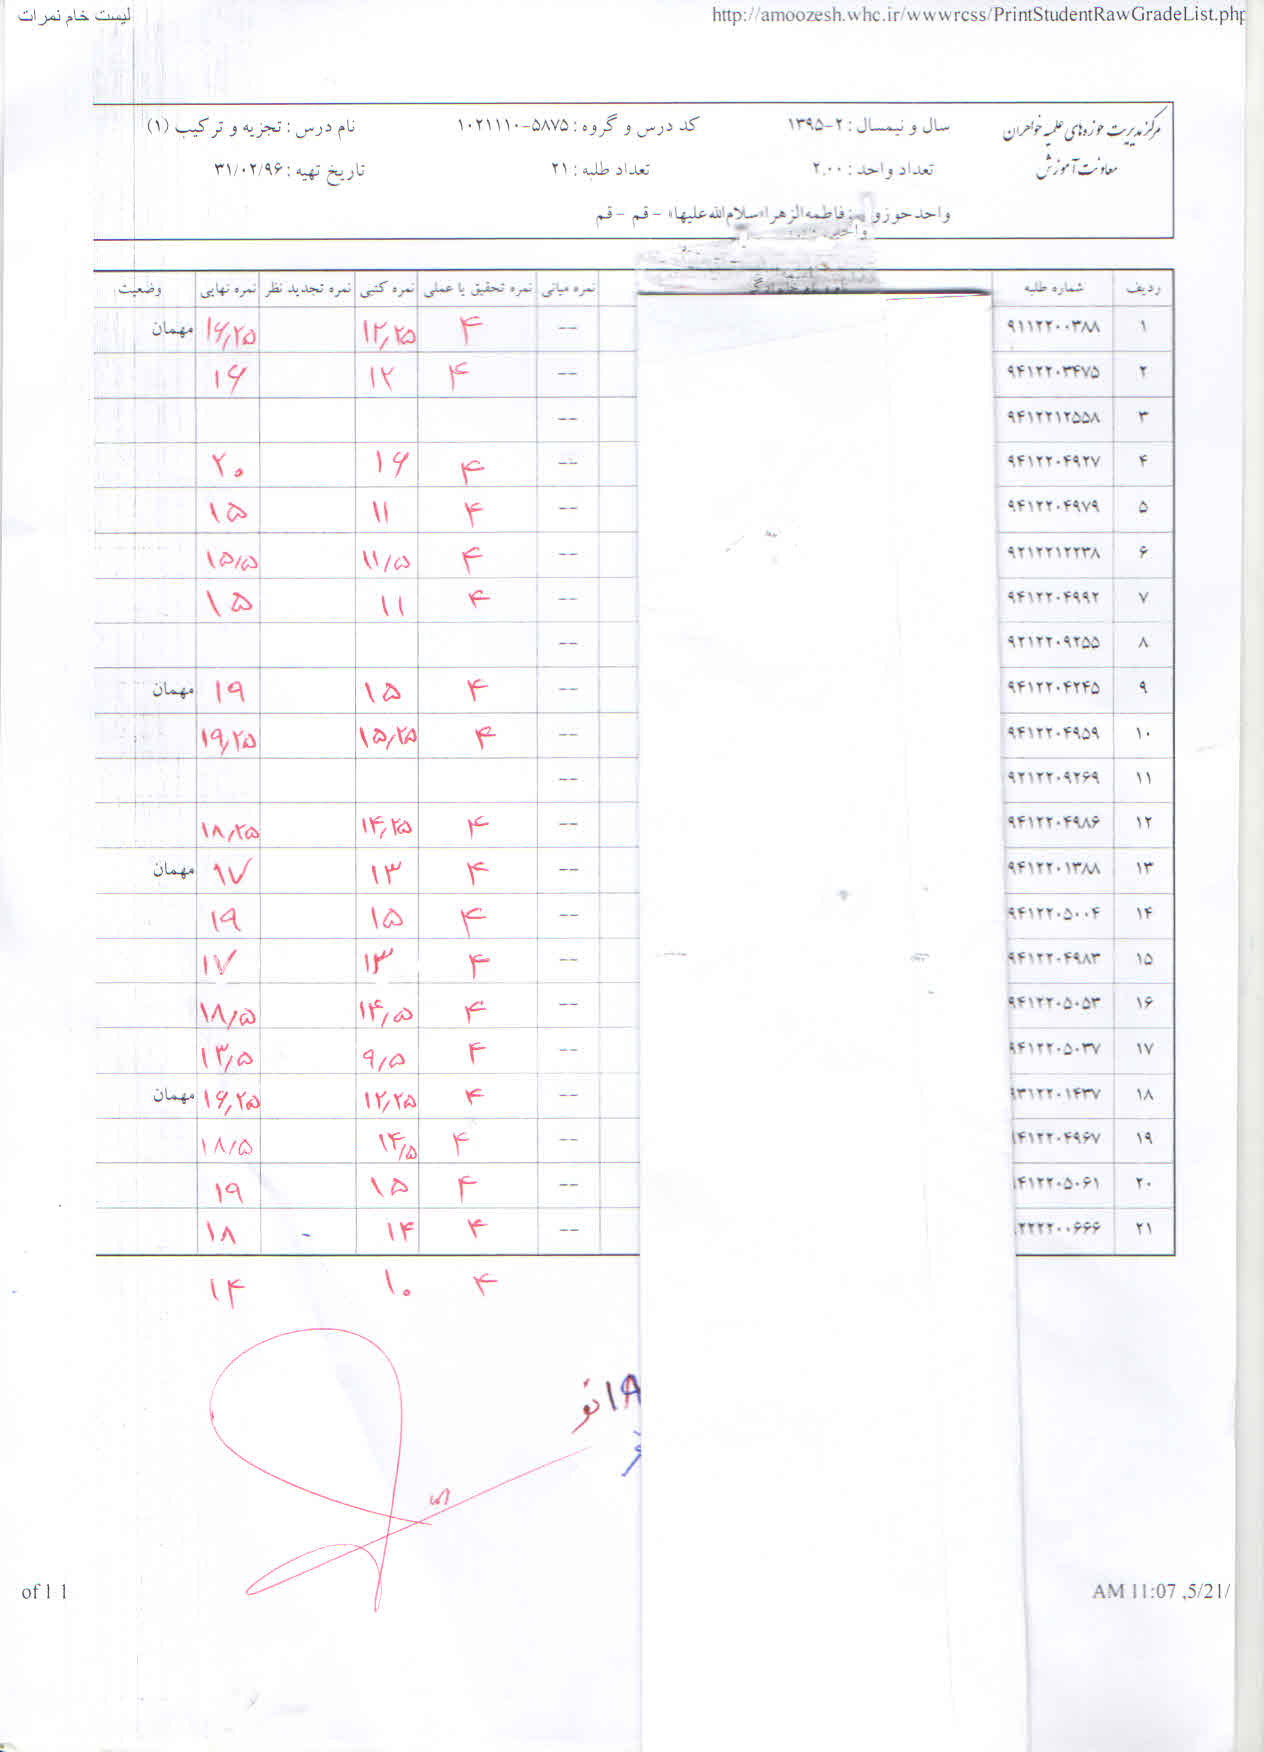 لیست خام نمرات http://amoozesh.whc.ir/wwwrcss/PrintStudentRawGradeList.php
مرکز مدیریت حوزه‌های علمیه خواهران سال و نیمسال : ۲-۱۳۹۵ کد درس و گروه : ۵۸۷۵-۱۰۲۱۱۱۰ نام درس : تجزیه و ترکیب (۱)
معاونت آموزش تعداد واحد : ۲.۰۰ تعداد طلبه : ۲۱ تاریخ تهیه : ۳۱/۰۲/۹۶
واحد حوزوی : فاطمه‌الزهرا«سلام‌الله‌علیها» - قم - قم
ردیف شماره طلبه نمره میانی نمره تحقیق یا عملی نمره کتبی نمره تجدید نظر نمره نهایی وضعیت
۱ ۹۱۱۲۲۰۰۳۸۸ -- ۴ ۱۲٫۲۵ ۱۶٫۲۵ مهمان
۲ ۹۴۱۲۲۰۳۴۷۵ -- ۴ ۱۲ ۱۶
۳ ۹۴۱۲۲۱۲۵۵۸ --
۴ ۹۴۱۲۲۰۴۹۲۷ -- ۴ ۱۶ ۲۰
۵ ۹۴۱۲۲۰۴۹۷۹ -- ۴ ۱۱ ۱۵
۶ ۹۲۱۲۲۱۲۲۳۸ -- ۴ ۱۱/۵ ۱۵/۵
۷ ۹۴۱۲۲۰۴۹۹۲ -- ۴ ۱۱ ۱۵
۸ ۹۲۱۲۲۰۹۲۵۵ --
۹ ۹۴۱۲۲۰۴۲۴۵ -- ۴ ۱۵ ۱۹ مهمان
۱۰ ۹۴۱۲۲۰۴۹۵۹ -- ۴ ۱۵٫۲۵ ۱۹٫۲۵
۱۱ ۹۲۱۲۲۰۹۲۶۹ --
۱۲ ۹۴۱۲۲۰۴۹۸۶ -- ۴ ۱۴٫۲۵ ۱۸٫۲۵
۱۳ ۹۴۱۲۲۰۱۳۸۸ -- ۴ ۱۳ ۱۷ مهمان
۱۴ ۹۴۱۲۲۰۵۰۰۴ -- ۴ ۱۵ ۱۹
۱۵ ۹۴۱۲۲۰۴۹۸۳ -- ۴ ۱۳ ۱۷
۱۶ ۹۴۱۲۲۰۵۰۵۳ -- ۴ ۱۴٫۵ ۱۸٫۵
۱۷ ۹۴۱۲۲۰۵۰۳۷ -- ۴ ۹/۵ ۱۳٫۵
۱۸ ۹۳۱۲۲۰۱۴۳۷ -- ۴ ۱۲٫۲۵ ۱۶٫۲۵ مهمان
۱۹ ۴۱۲۲۰۴۹۶۷ -- ۴ ۱۴٫۵ ۱۸/۵
۲۰ ۴۱۲۲۰۵۰۶۱ -- ۴ ۱۵ ۱۹
۲۱ ۲۲۲۲۰۰۶۶۶ -- ۴ ۱۴ ۱۸
۴ ۱۰ ۱۴
of 1 1 AM 11:07 ,5/21/